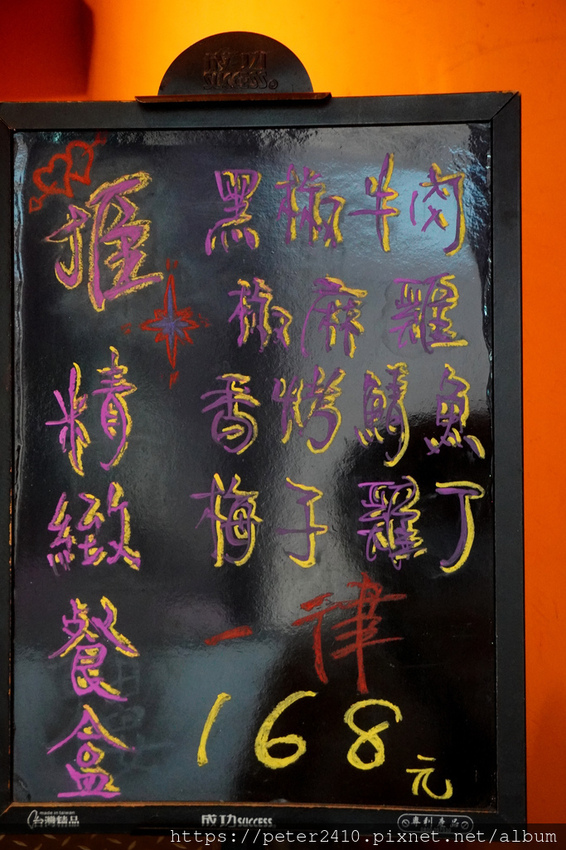 成功
SUCCESS
推
精緻餐盒
黑椒牛肉
椒麻雞
香烤鯖魚
梅子雞丁
一律
168元
MADE IN TAIWAN
台灣精品
成功SUCCESS
專利產品
https://peter2410.pixnet.net/album